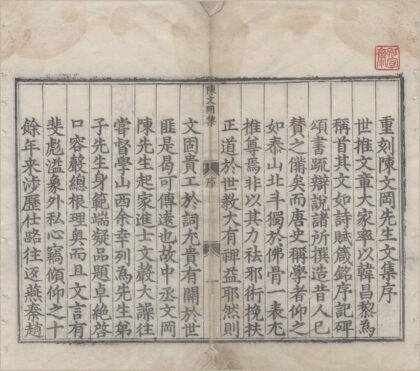 重刻陳文岡先生文集序
世推文章大家率以韓昌黎為
稱首其文如詩賦箴銘序記碑
頌書疏辯說諸所撰造昔人已
賛之備矣而唐史稱學者仰之
如泰山北斗獨於佛骨一表尤
推尊焉非以其力祛邪術挽扶
正道於世教大有裨益耶然則
陳文岡集
序
一
文固貴工於詞尤貴有關於世
匪是曷可傳遠也故中丞文岡
陳先生起家進士文轂大譟往
嘗督學山西余幸列為先生弟
子先生身範端凝品題卓絶啓
口容轂總根理奥而且文言有
斐彪溢象外私心竊傾仰之十
餘年来涉歷仕路往迈燕秦趙